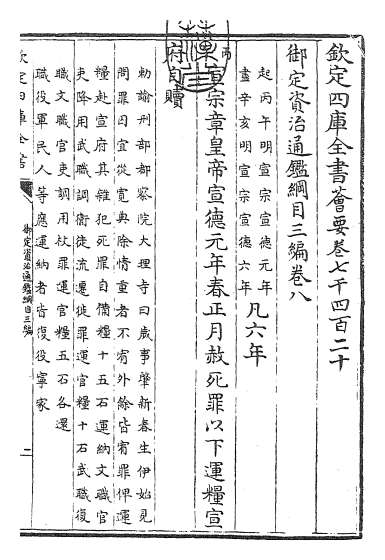 欽定四庫全書薈要卷七千四百二十
御定資治通鑑綱目三編卷八
起丙午明宣宗宣德元年
盡辛亥明宣宗宣德六年
凡六年
丙午
宣宗章皇帝宣德元年春正月赦死罪以下運糧宣
府自贖
勅諭刑部都察院大理寺曰歲事肇新春生伊始見
問罪囚宜從寬典除情重者不宥外餘皆宥罪俾運
糧赴宣府其雜犯死罪自備糧十五石運納文職官
吏降用武職調衛徒流遷徙罪運官糧十石武職復
職文職官吏調用杖罪運官糧五石各還
職役軍民人等應運納者皆復役寧家
欽定四庫全書
御定資治通鑑綱目三編
一